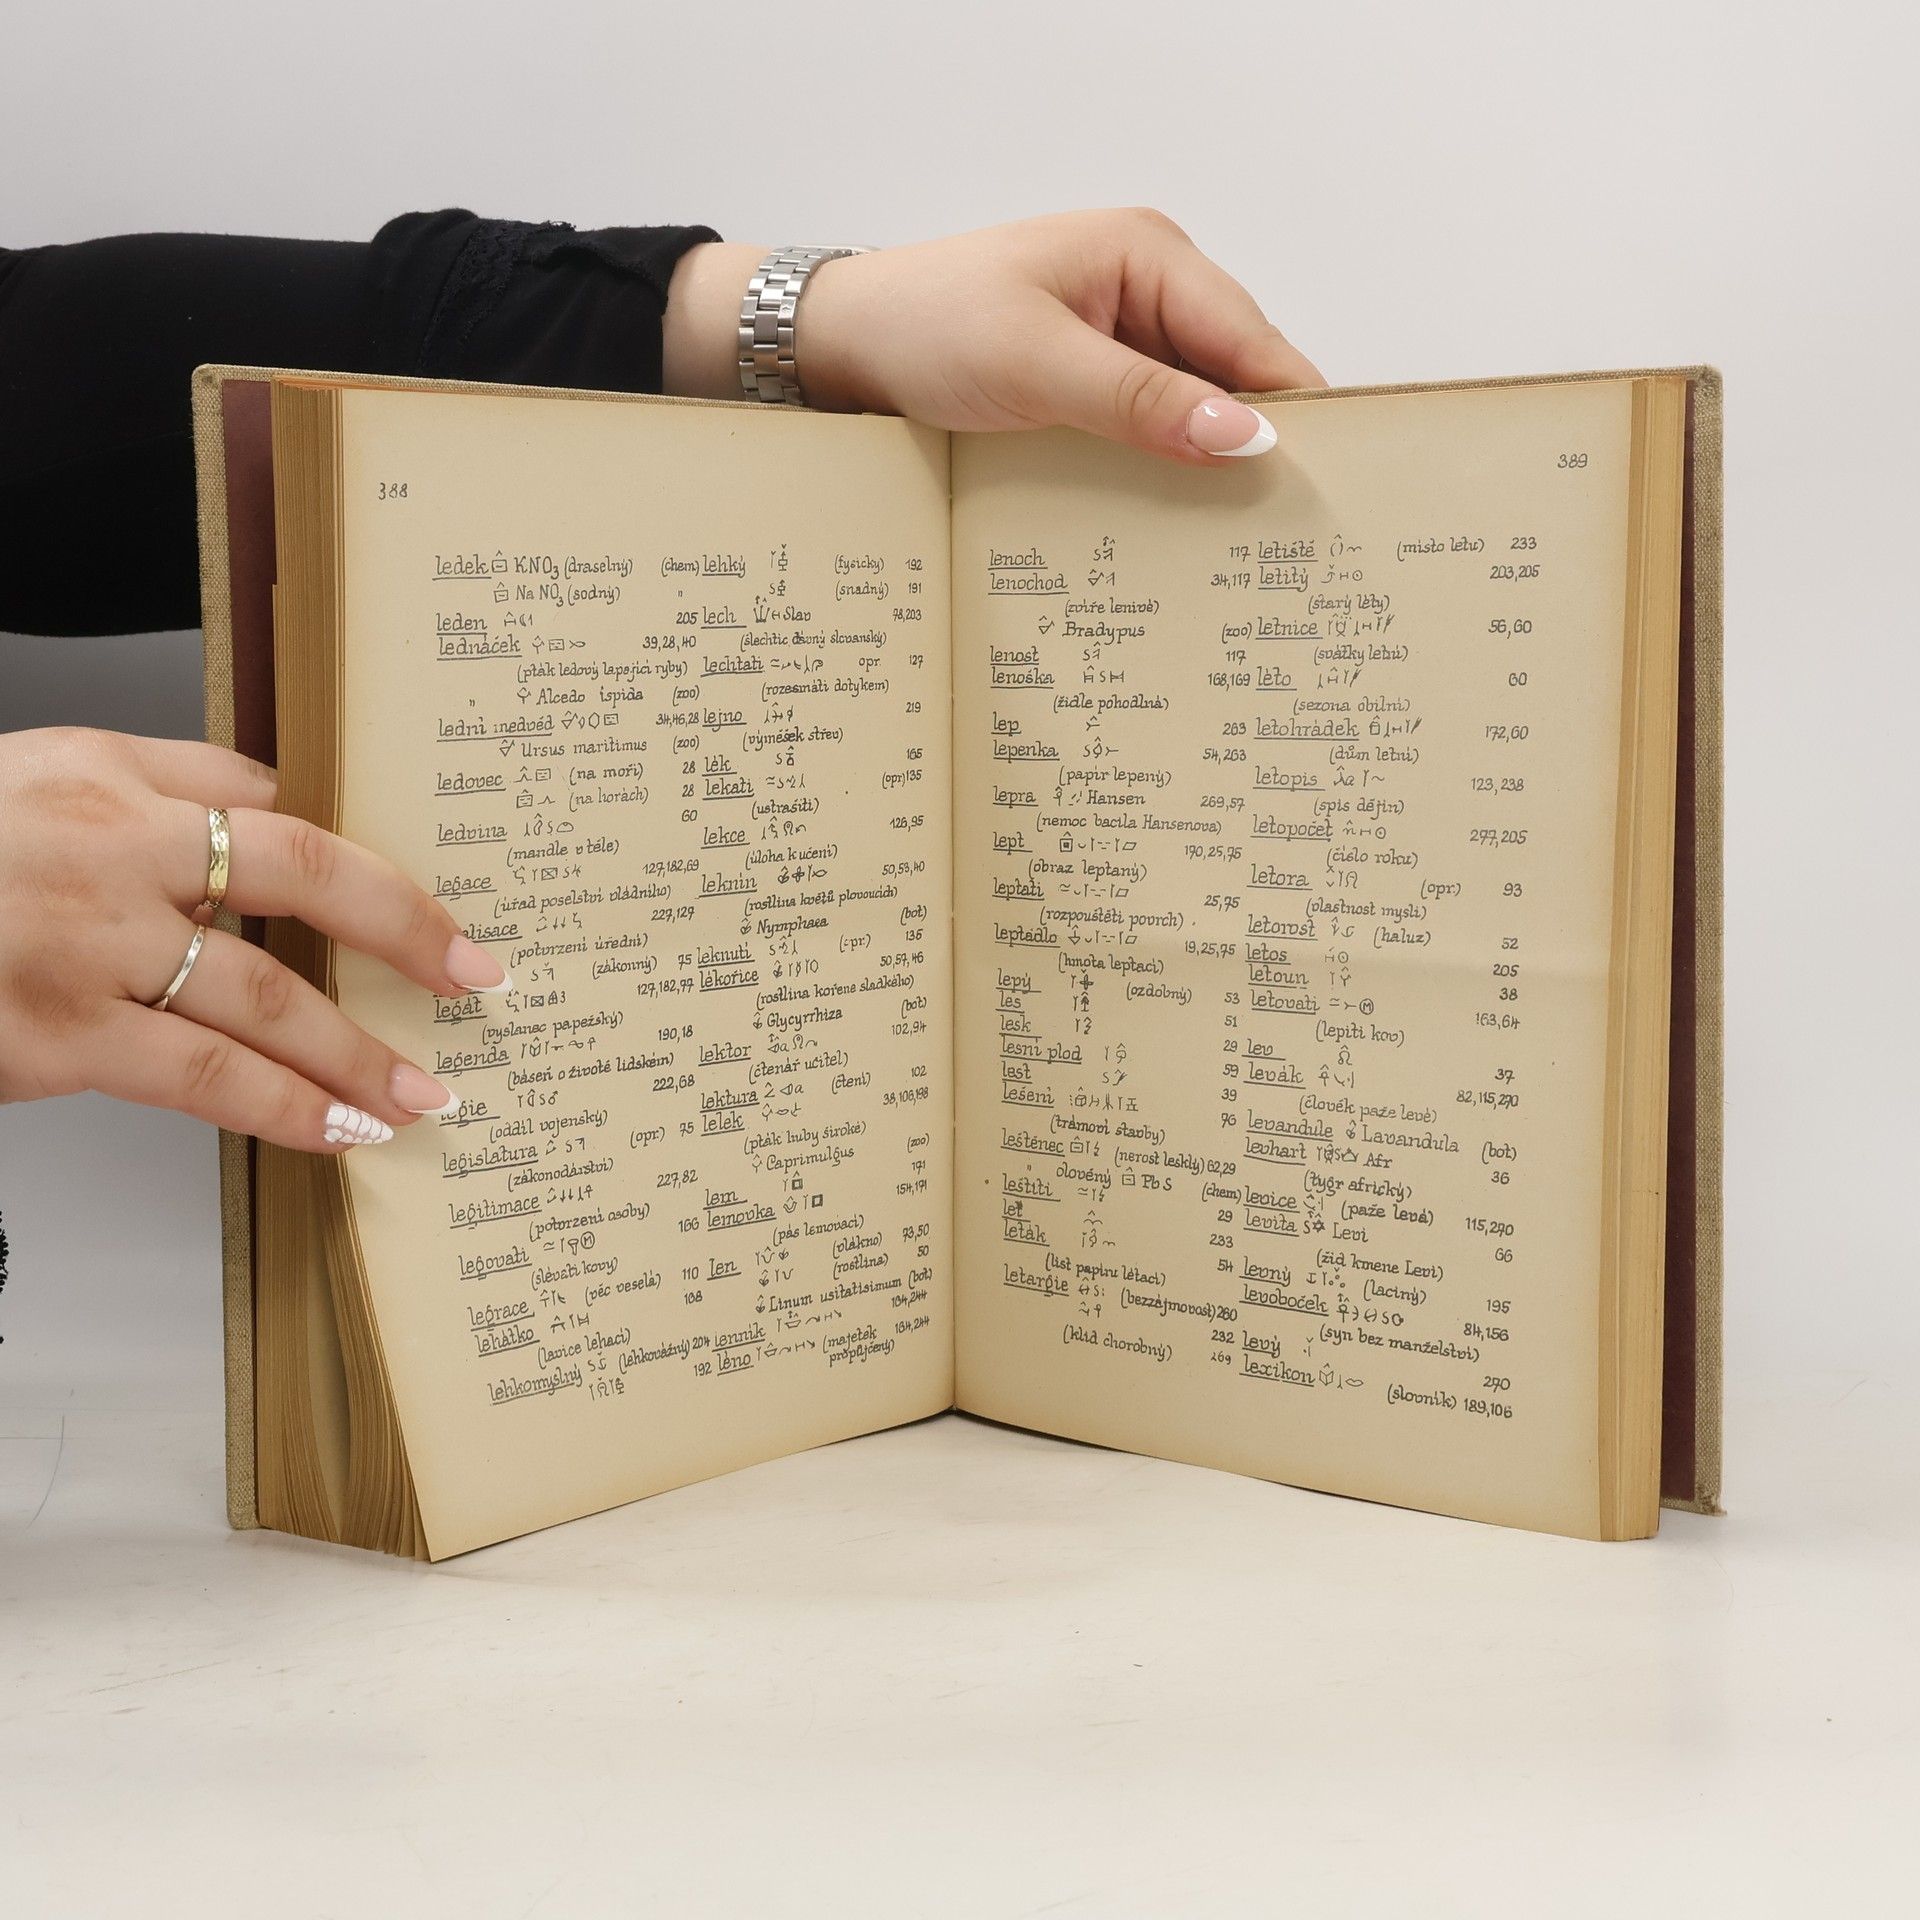 388
ledek KNO3 (draselný) (chem)
NaNO3 (sodný) "
leden 205
ledňáček 39,28,40
(pták ledový lapející ryby)
" Alcedo ispida (zoo)
lední medvěd 34,46,28
Ursus maritimus (zoo)
ledovec (na moři) 28
(na horách) 28
ledvina 60
(mandle v těle)
legace 127,182,69
(úřad poselství vládního)
alisace 227,127
(potvrzení úřední)
(zákonný) 75
legát 127,182,77
(vyslanec papežský)
legenda 190,18
(báseň o životě lidském)
legie 222,68
(oddíl vojenský)
legislatura (opr) 75
(zákonodárství)
legitimace 227,82
(potvrzení osoby)
legovati 166
(slévati kovy)
legrace (věc veselá) 110
lehátko 168
(lavice lehací)
lehkomyslný (lehkovážný) 204
192
lehký (fysicky) 192
(snadný) 191
lech Slav 78,203
(šlechtic dávný slovanský)
lechtati opr. 127
(rozesmáti dotykem)
lejno 219
(výměšek střev)
lék 165
lekati (opr) 135
(ustrašiti)
lekce 126,95
(úloha k učení)
leknín 50,53,40
(rostlina květů plovoucích)
Nymphaea (bot)
leknutí (opr) 135
lékořice 50,57,46
(rostlina kořene sladkého)
Glycyrrhiza (bot)
lektor 102,94
(čtenář učitel)
lektura (čtení) 102
lelek 38,106,198
(pták huby široké)
Caprimulgus (zoo)
lem 171
lemovka 154,171
(pás lemovací)
len (vlákno) 73,50
(rostlina) 50
Linum usitatisimum (bot)
lenník 164,244
léno (majetek propůjčený) 164,244
389
lenoch 117
lenochod 34,117
(zvíře lenivé)
Bradypus (zoo)
lenost 117
lenoška 168,169
(židle pohodlná)
lep 263
lepenka 54,263
(papír lepený)
lepra Hansen 269,57
(nemoc bacila Hansenova)
lept 170,25,75
(obraz leptaný)
leptati 25,75
(rozpouštěti povrch)
leptadlo 19,25,75
(hmota leptací)
lepý (ozdobný) 53
les 51
lesk 29
lesní plod 59
lest 39
lešení 76
(trámoví stavby)
leštěnec (nerost lesklý) 62,29
" olověný PbS (chem)
leštiti 29
let 233
leták 54
(list papíru létací)
letargie (bezzájmovost) 260
232
(klid chorobný) 269
letiště (místo letu) 233
letitý 203,205
(starý léty)
letnice 56,60
(svátky letní)
léto 60
(sezona obilní)
letohrádek 172,60
(dům letní)
letopis 123,238
(spis dějin)
letopočet 277,205
(číslo roku)
letora (opr.) 93
(vlastnost mysli)
letorost (haluz) 52
letos 205
letoun 38
letovati 163,64
(lepiti kov)
lev 37
levák 82,115,270
(člověk paže levé)
levandule Lavandula (bot)
levhart Afr 36
(tygr africký)
levice (paže levá) 115,270
levita Levi 66
(žid kmene Levi)
levný (laciný) 195
levoboček 84,156
(syn bez manželství)
levý 270
lexikon (slovník) 189,106